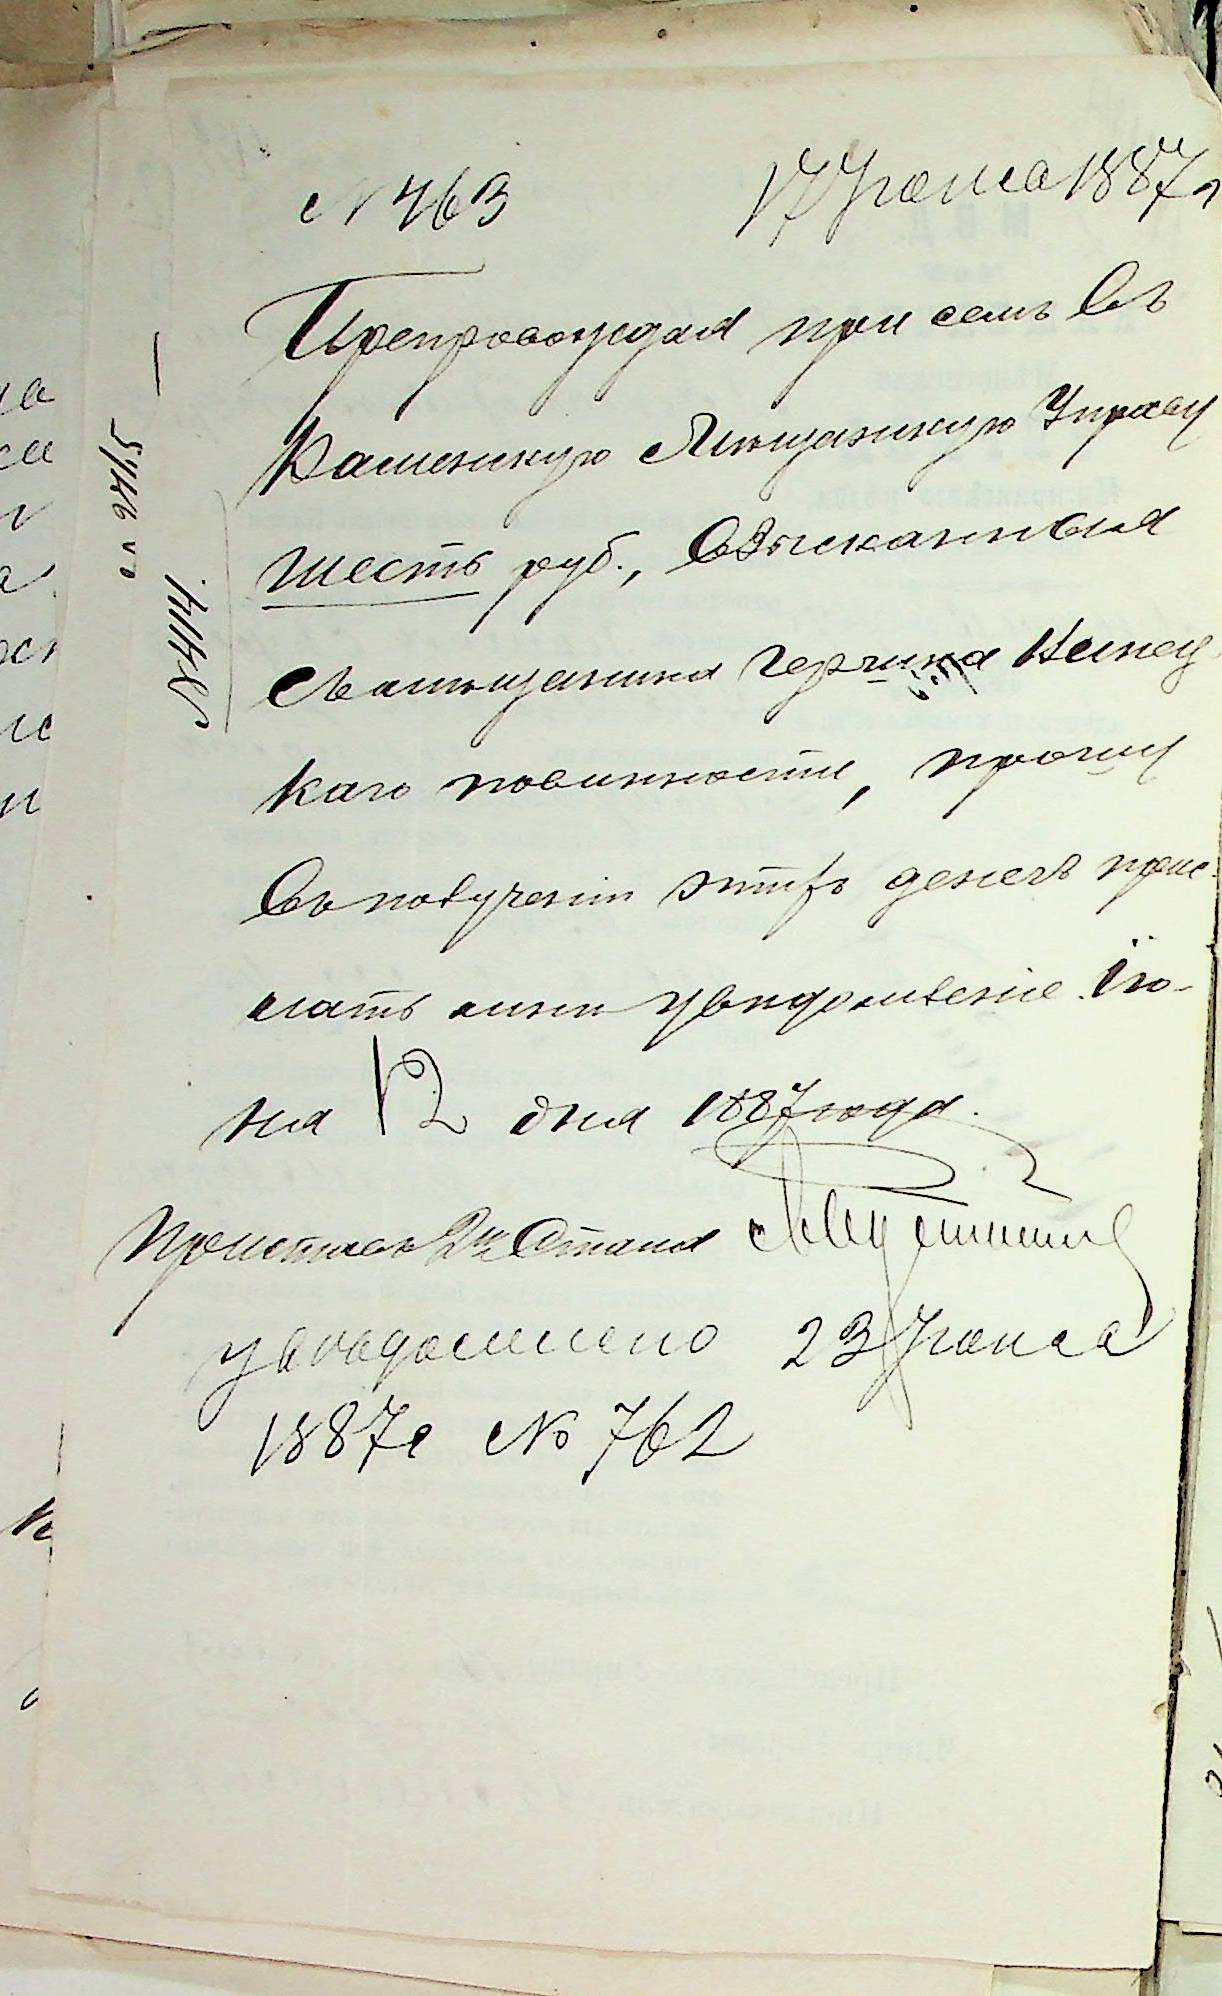 № 463 17 Июня 1887 г
Препровождая при семъ въ
Каменскую Мѣщанскую Управу
шесть руб., взысканныя
съ мѣщанина
каго повинности, прошу
въ полученіи этихъ денегъ прис
лать мнѣ увѣдомленіе. Iю-
ня 12 дня 1887 года.
Приставъ 2го Стана
увѣдомлено 23 Июня
1887 г № 762
№ 4114